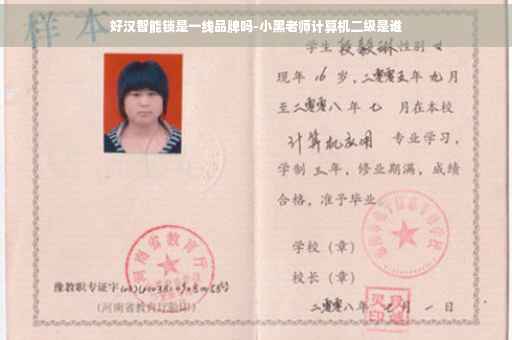 好汉智能锁是一线品牌吗-小黑老师计算机二级是谁
样本
学生 段毅琳 性别 女
现年 16 岁，二零零五年 九 月
至二零零八 年 七 月在本校
计算机应用 专业学习，
学制 三 年，修业期满，成绩
合格，准予毕业。
学校（章）
校长（章）
二零零八年 七 月 一 日
河南省教育厅
豫教职专证字
（河南省教育厅验印）